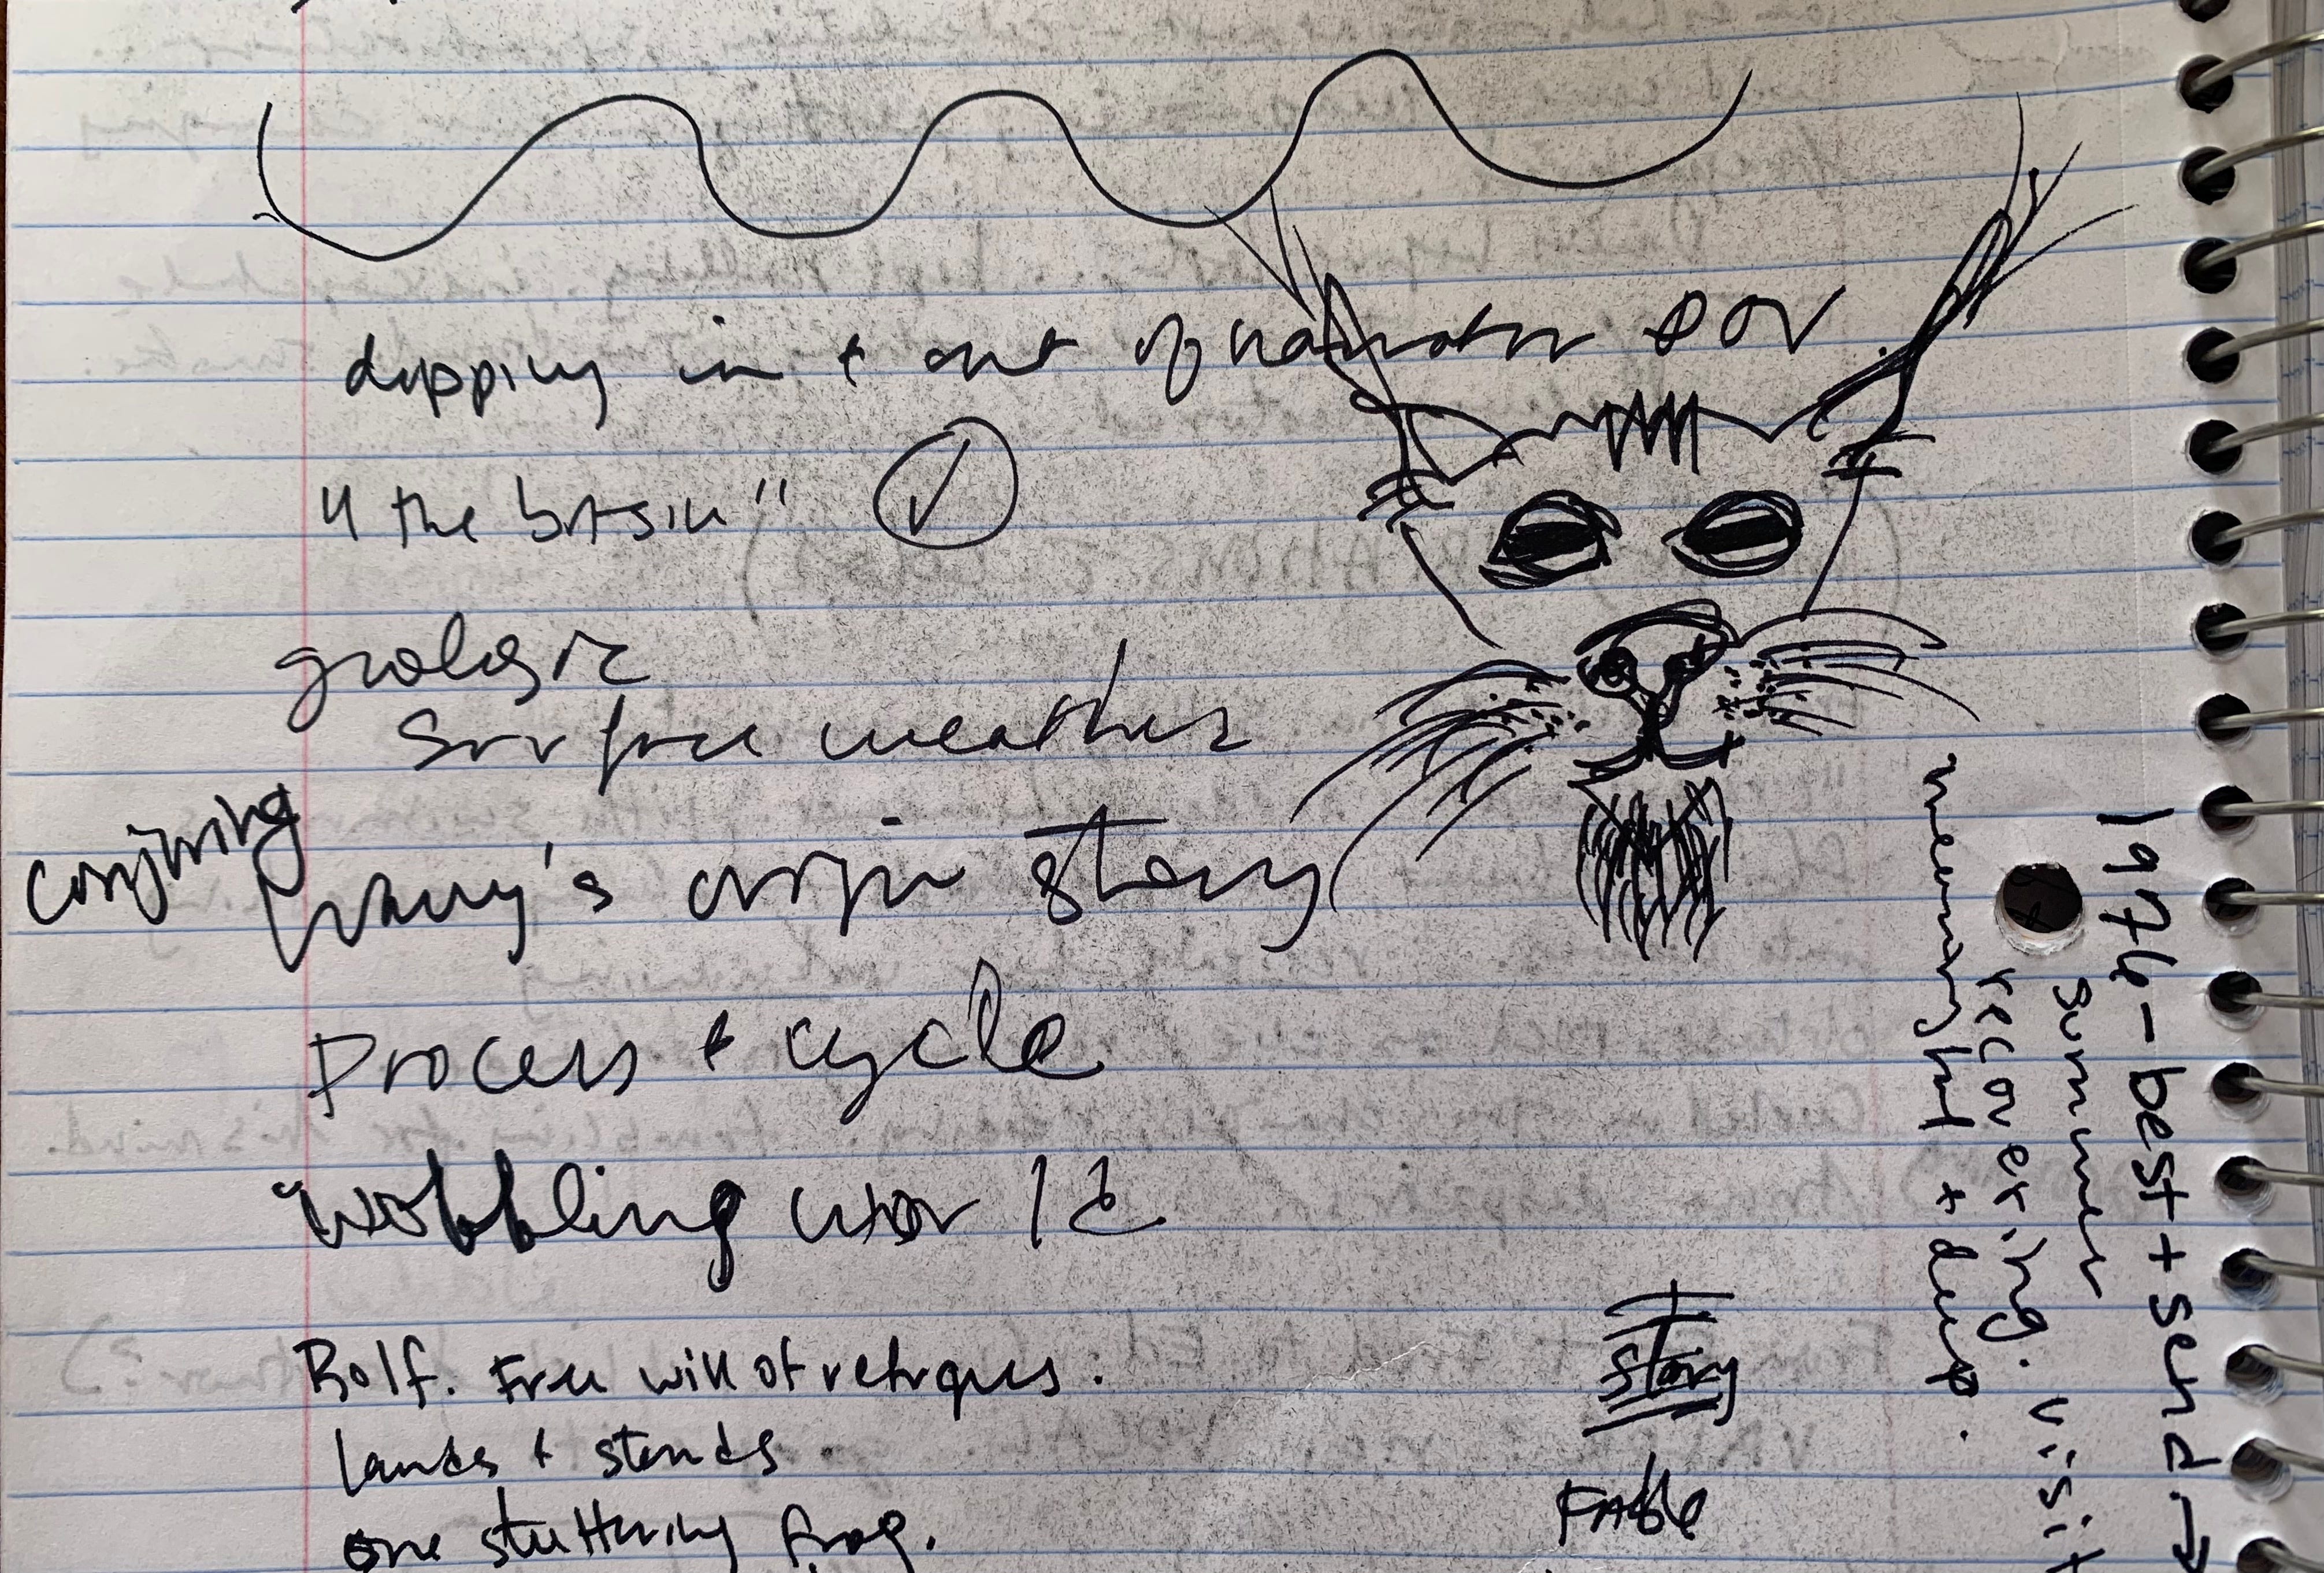 dipping in + out of narrator POV.
"the basin" ✓
geologic
surface weather
conjuring
Wavy's origin story
process + cycle
wobbling
Rolf. Free will of
lands + stands
one stuttering frog.
story
Fable
1976 - best + send →
summer
recovering. visit
meaningful + deep.